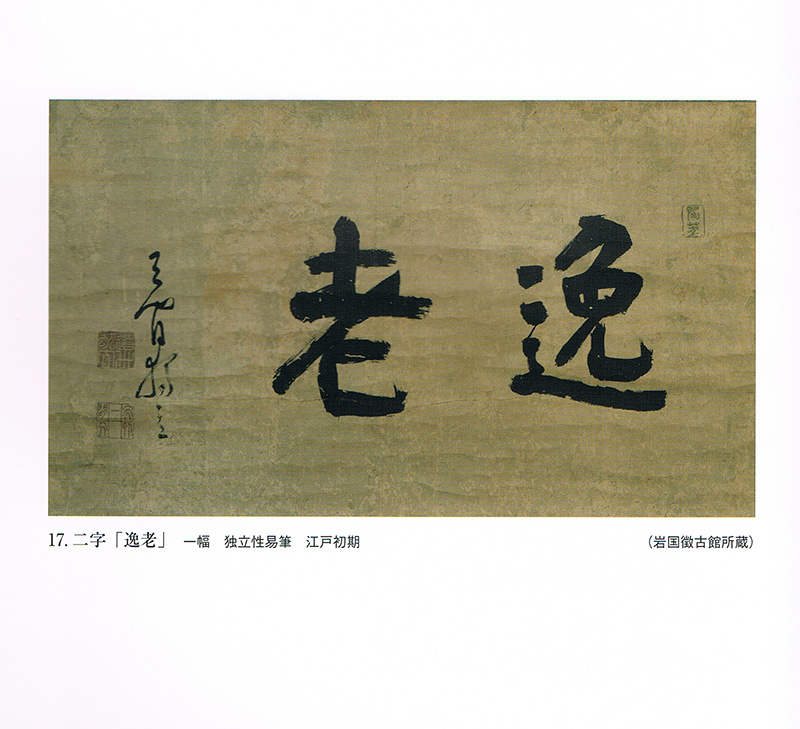 逸老
天外間人獨立
17. 二字「逸老」 一幅 独立性易筆 江戸初期
（岩国徴古館所蔵）